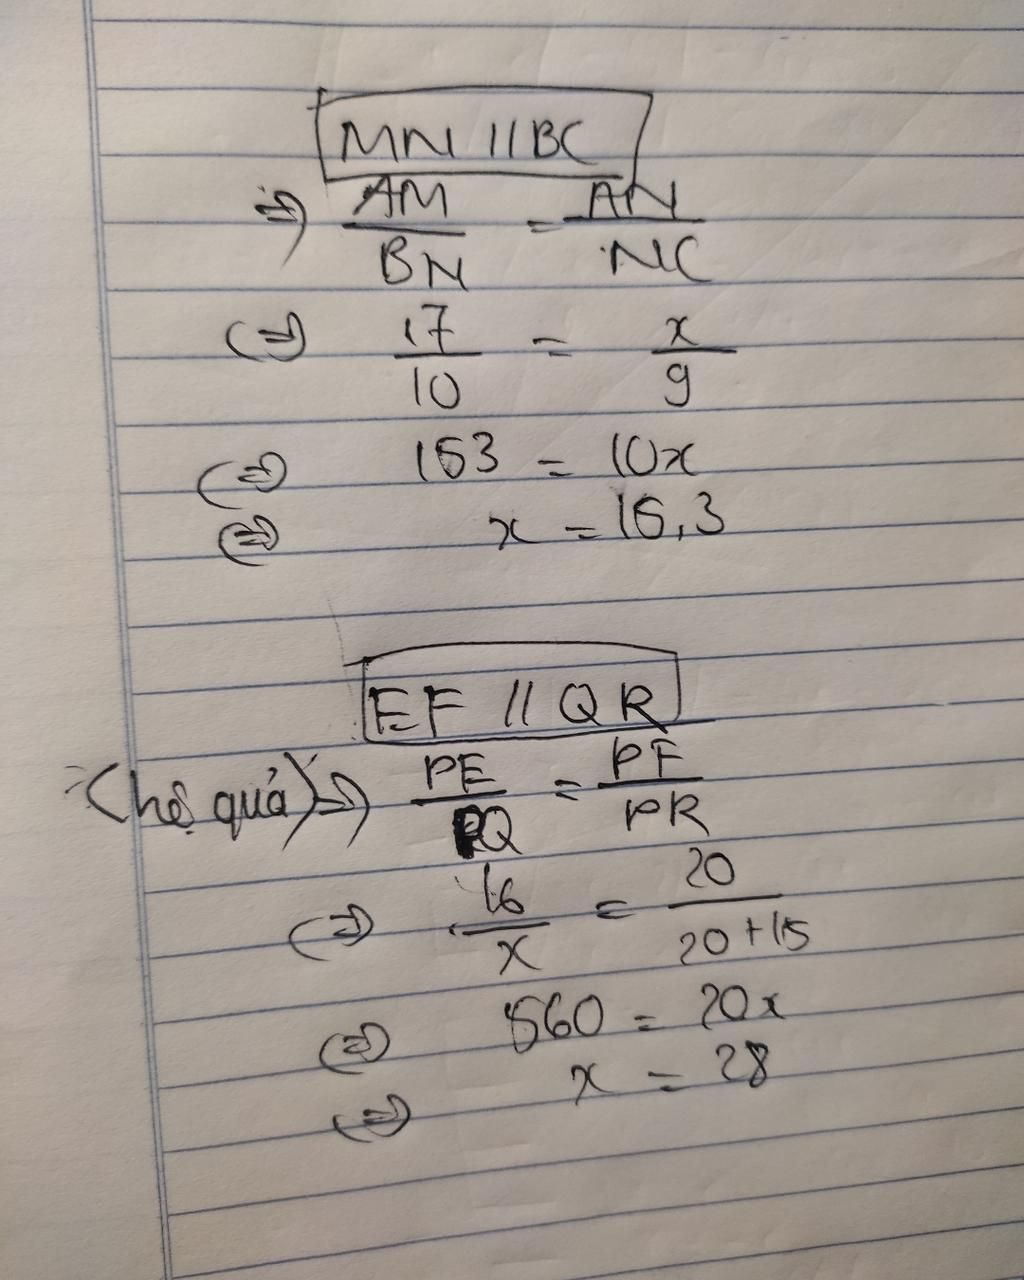 MN // BC
=> AM/BN = AN/NC
<=> 17/10 = x/9
<=> 153 = 10x
<=> x = 15,3
EF // QR
(hệ quả) => PE/PQ = PF/PR
<=> 16/x = 20/20+15
<=> 560 = 20x
<=> x = 28